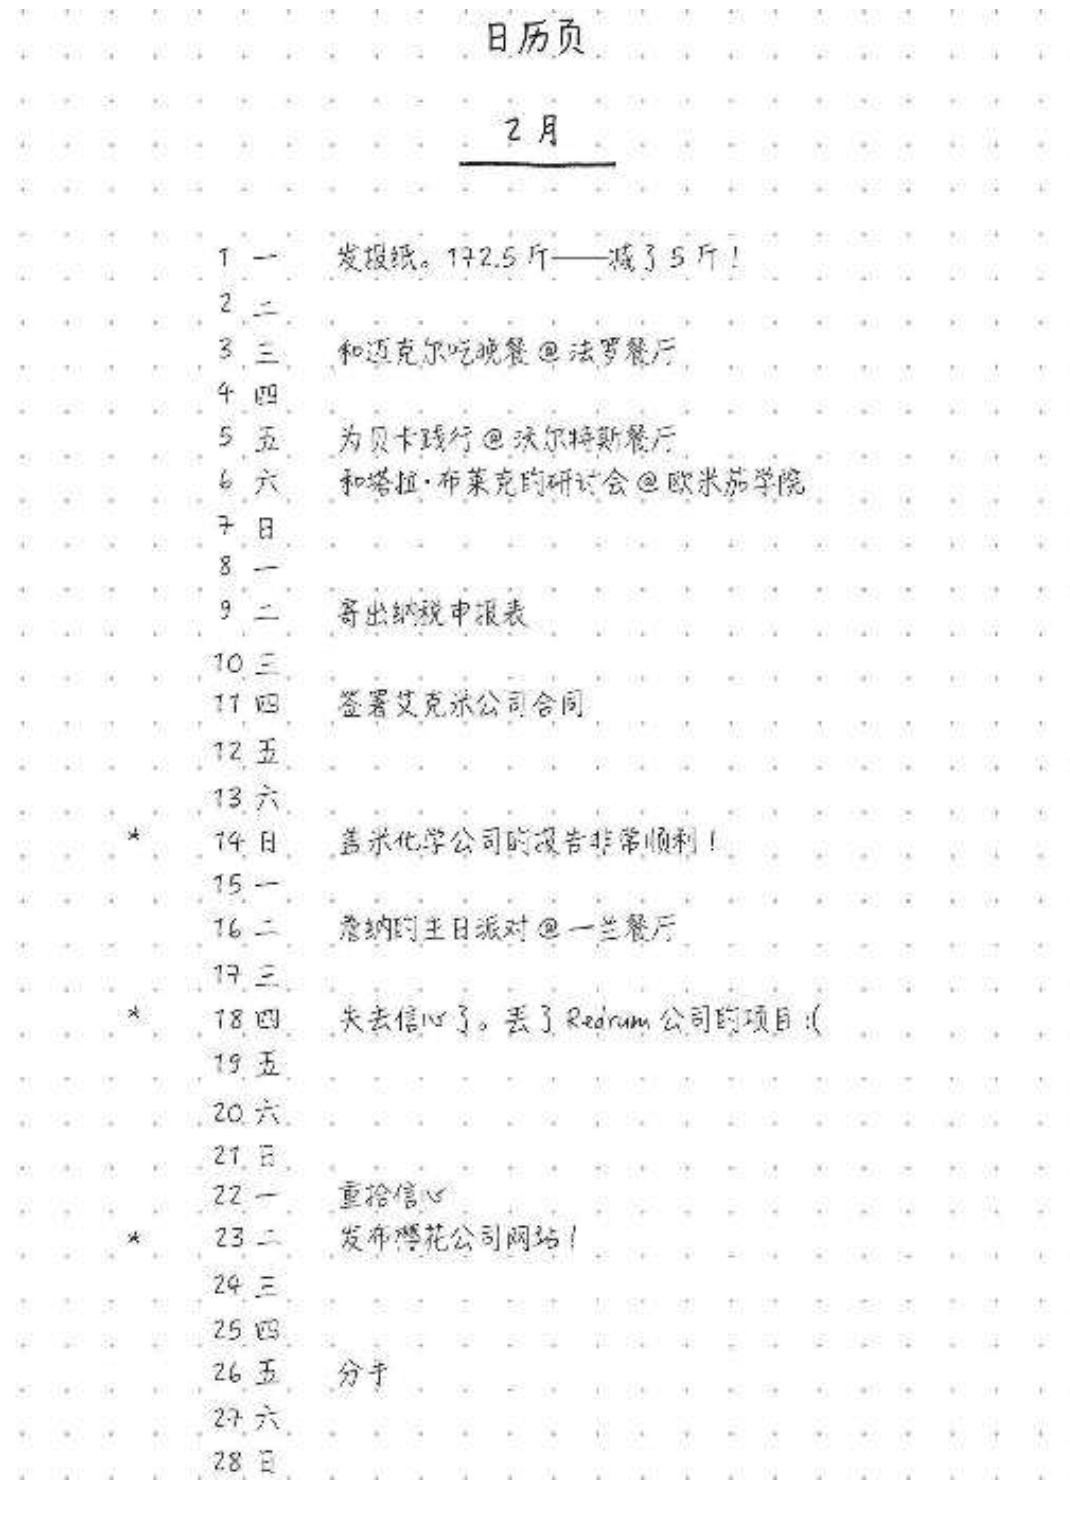 日历页
2月
1 一 发报纸。172.5斤——减了5斤!
2 二
3 三 和迈克尔吃晚餐@法罗餐厅
4 四
5 五 为贝卡践行@沃尔特斯餐厅
6 六 和塔拉·布莱克的研讨会@欧米茄学院
7 日
8 一
9 二 寄出纳税申报表
10 三
11 四 签署艾克米公司合同
12 五
13 六
* 14 日 盖米化学公司的报告非常顺利!
15 一
16 二 詹纳的生日派对@一兰餐厅
17 三
* 18 四 失去信心了。丢了Redrum公司的项目:(
19 五
20 六
21 日
22 一 重拾信心
* 23 二 发布樱花公司网站!
24 三
25 四
26 五 分手
27 六
28 日